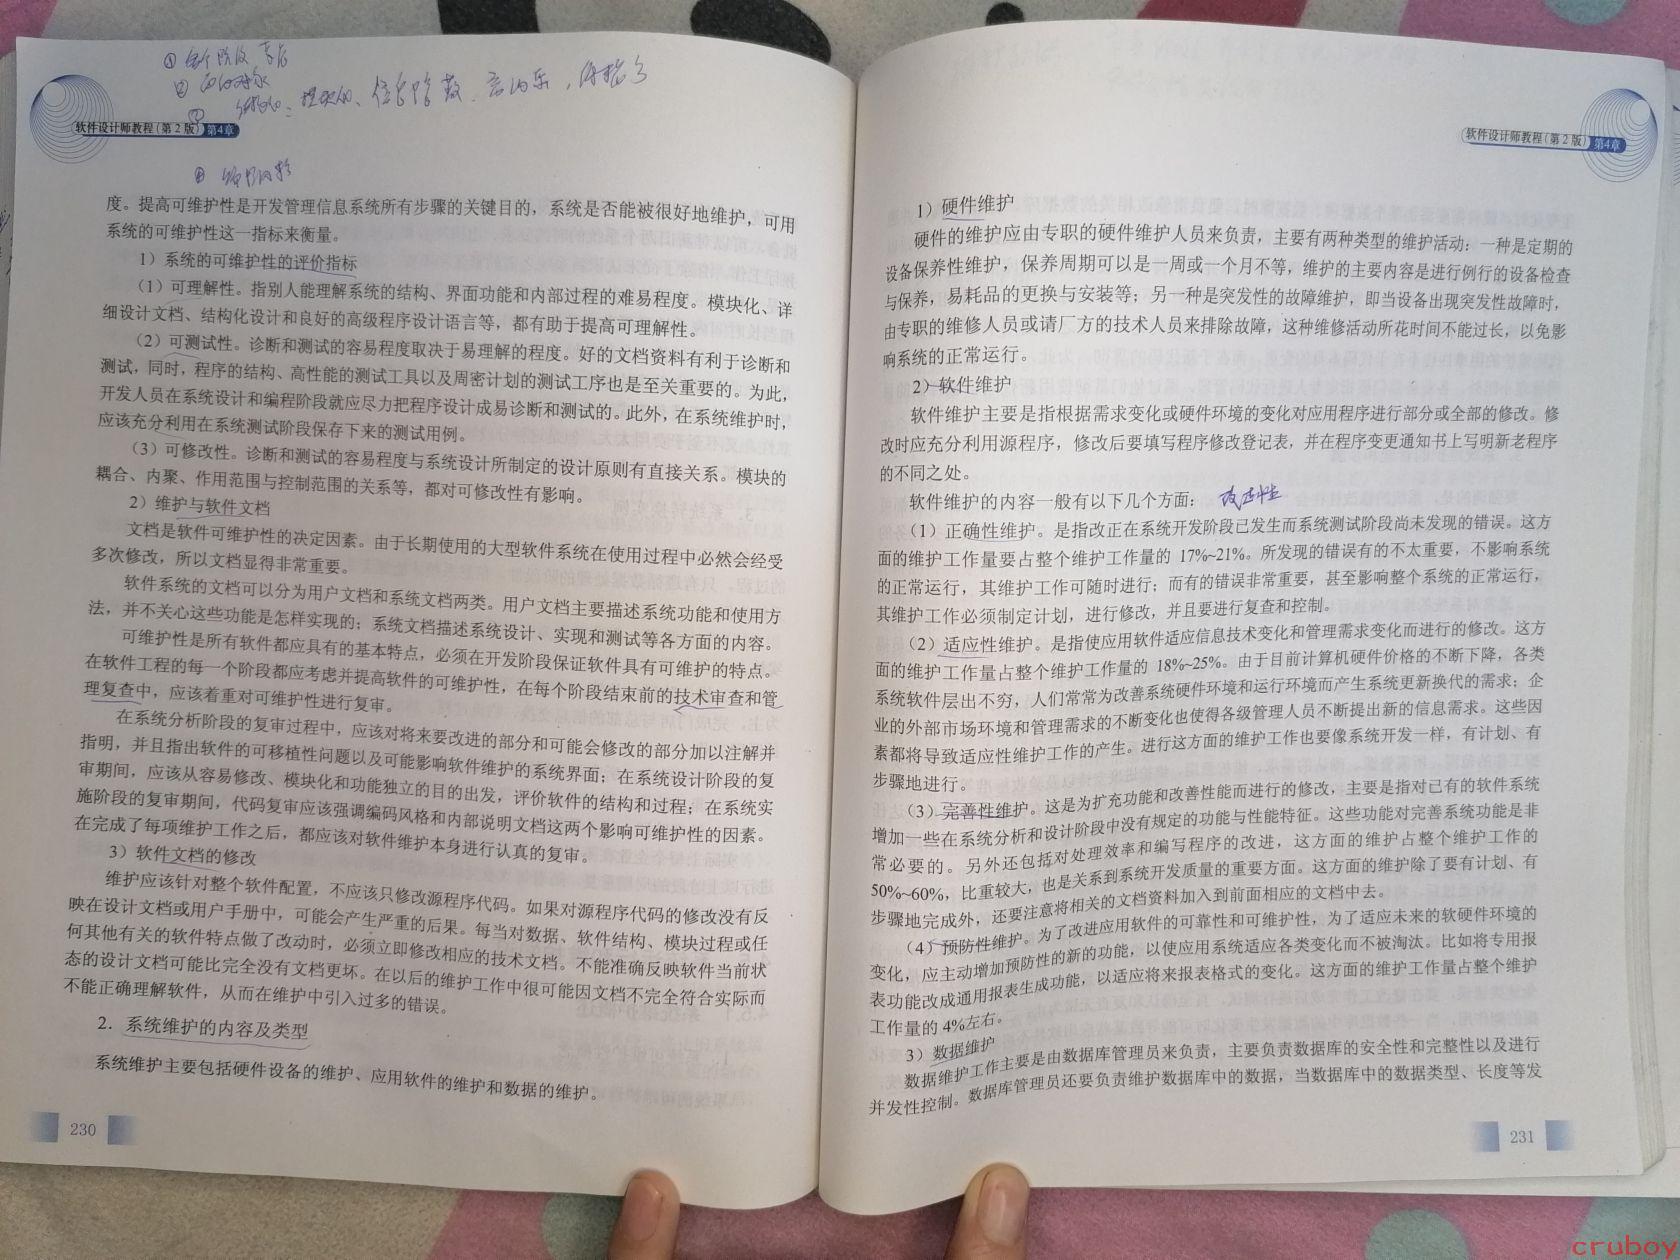 软件设计师教程（第2版） 第4章
度。提高可维护性是开发管理信息系统所有步骤的关键目的，系统是否能被很好地维护，可用
系统的可维护性这一指标来衡量。
1）系统的可维护性的评价指标
（1）可理解性。指别人能理解系统的结构、界面功能和内部过程的难易程度。模块化、详
细设计文档、结构化设计和良好的高级程序设计语言等，都有助于提高可理解性。
（2）可测试性。诊断和测试的容易程度取决于易理解的程度。好的文档资料有利于诊断和
测试，同时，程序的结构、高性能的测试工具以及周密计划的测试工序也是至关重要的。为此，
开发人员在系统设计和编程阶段就应尽力把程序设计成易诊断和测试的。此外，在系统维护时，
应该充分利用在系统测试阶段保存下来的测试用例。
（3）可修改性。诊断和测试的容易程度与系统设计所制定的设计原则有直接关系。模块的
耦合、内聚、作用范围与控制范围的关系等，都对可修改性有影响。
2）维护与软件文档
文档是软件可维护性的决定因素。由于长期使用的大型软件系统在使用过程中必然会经受
多次修改，所以文档显得非常重要。
软件系统的文档可以分为用户文档和系统文档两类。用户文档主要描述系统功能和使用方
法，并不关心这些功能是怎样实现的；系统文档描述系统设计、实现和测试等各方面的内容。
可维护性是所有软件都应具有的基本特点，必须在开发阶段保证软件具有可维护的特点。
在软件工程的每一个阶段都应考虑并提高软件的可维护性，在每个阶段结束前的技术审查和管
理复查中，应该着重对可维护性进行复审。
在系统分析阶段的复审过程中，应该对将来要改进的部分和可能会修改的部分加以注解并
指明，并且指出软件的可移植性问题以及可能影响软件维护的系统界面；在系统设计阶段的复
审期间，应该从容易修改、模块化和功能独立的目的出发，评价软件的结构和过程；在系统实
施阶段的复审期间，代码复审应该强调编码风格和内部说明文档这两个影响可维护性的因素。
在完成了每项维护工作之后，都应该对软件维护本身进行认真的复审。
3）软件文档的修改
维护应该针对整个软件配置，不应该只修改源程序代码。如果对源程序代码的修改没有反
映在设计文档或用户手册中，可能会产生严重的后果。每当对数据、软件结构、模块过程或任
何其他有关的软件特点做了改动时，必须立即修改相应的技术文档。不能准确反映软件当前状
态的设计文档可能比完全没有文档更坏。在以后的维护工作中很可能因文档不完全符合实际而
不能正确理解软件，从而在维护中引入过多的错误。
2．系统维护的内容及类型
系统维护主要包括硬件设备的维护、应用软件的维护和数据的维护。
230
软件设计师教程（第2版） 第4章
1）硬件维护
硬件的维护应由专职的硬件维护人员来负责，主要有两种类型的维护活动：一种是定期的
设备保养性维护，保养周期可以是一周或一个月不等，维护的主要内容是进行例行的设备检查
与保养，易耗品的更换与安装等；另一种是突发性的故障维护，即当设备出现突发性故障时，
由专职的维修人员或请厂方的技术人员来排除故障，这种维修活动所花时间不能过长，以免影
响系统的正常运行。
2）软件维护
软件维护主要是指根据需求变化或硬件环境的变化对应用程序进行部分或全部的修改。修
改时应充分利用源程序，修改后要填写程序修改登记表，并在程序变更通知书上写明新老程序
的不同之处。
软件维护的内容一般有以下几个方面：
（1）正确性维护。是指改正在系统开发阶段已发生而系统测试阶段尚未发现的错误。这方
面的维护工作量要占整个维护工作量的 17%~21%。所发现的错误有的不太重要，不影响系统
的正常运行，其维护工作可随时进行；而有的错误非常重要，甚至影响整个系统的正常运行，
其维护工作必须制定计划，进行修改，并且要进行复查和控制。
（2）适应性维护。是指使应用软件适应信息技术变化和管理需求变化而进行的修改。这方
面的维护工作量占整个维护工作量的 18%~25%。由于目前计算机硬件价格的不断下降，各类
系统软件层出不穷，人们常常为改善系统硬件环境和运行环境而产生系统更新换代的需求；企
业的外部市场环境和管理需求的不断变化也使得各级管理人员不断提出新的信息需求。这些因
素都将导致适应性维护工作的产生。进行这方面的维护工作也要像系统开发一样，有计划、有
步骤地进行。
（3）完善性维护。这是为扩充功能和改善性能而进行的修改，主要是指对已有的软件系统
增加一些在系统分析和设计阶段中没有规定的功能与性能特征。这些功能对完善系统功能是非
常必要的。另外还包括对处理效率和编写程序的改进，这方面的维护占整个维护工作的
50%~60%，比重较大，也是关系到系统开发质量的重要方面。这方面的维护除了要有计划、有
步骤地完成外，还要注意将相关的文档资料加入到前面相应的文档中去。
（4）预防性维护。为了改进应用软件的可靠性和可维护性，为了适应未来的软硬件环境的
变化，应主动增加预防性的新的功能，以使应用系统适应各类变化而不被淘汰。比如将专用报
表功能改成通用报表生成功能，以适应将来报表格式的变化。这方面的维护工作量占整个维护
工作量的 4%左右。
3）数据维护
数据维护工作主要是由数据库管理员来负责，主要负责数据库的安全性和完整性以及进行
并发性控制。数据库管理员还要负责维护数据库中的数据，当数据库中的数据类型、长度等发
231
cruboy